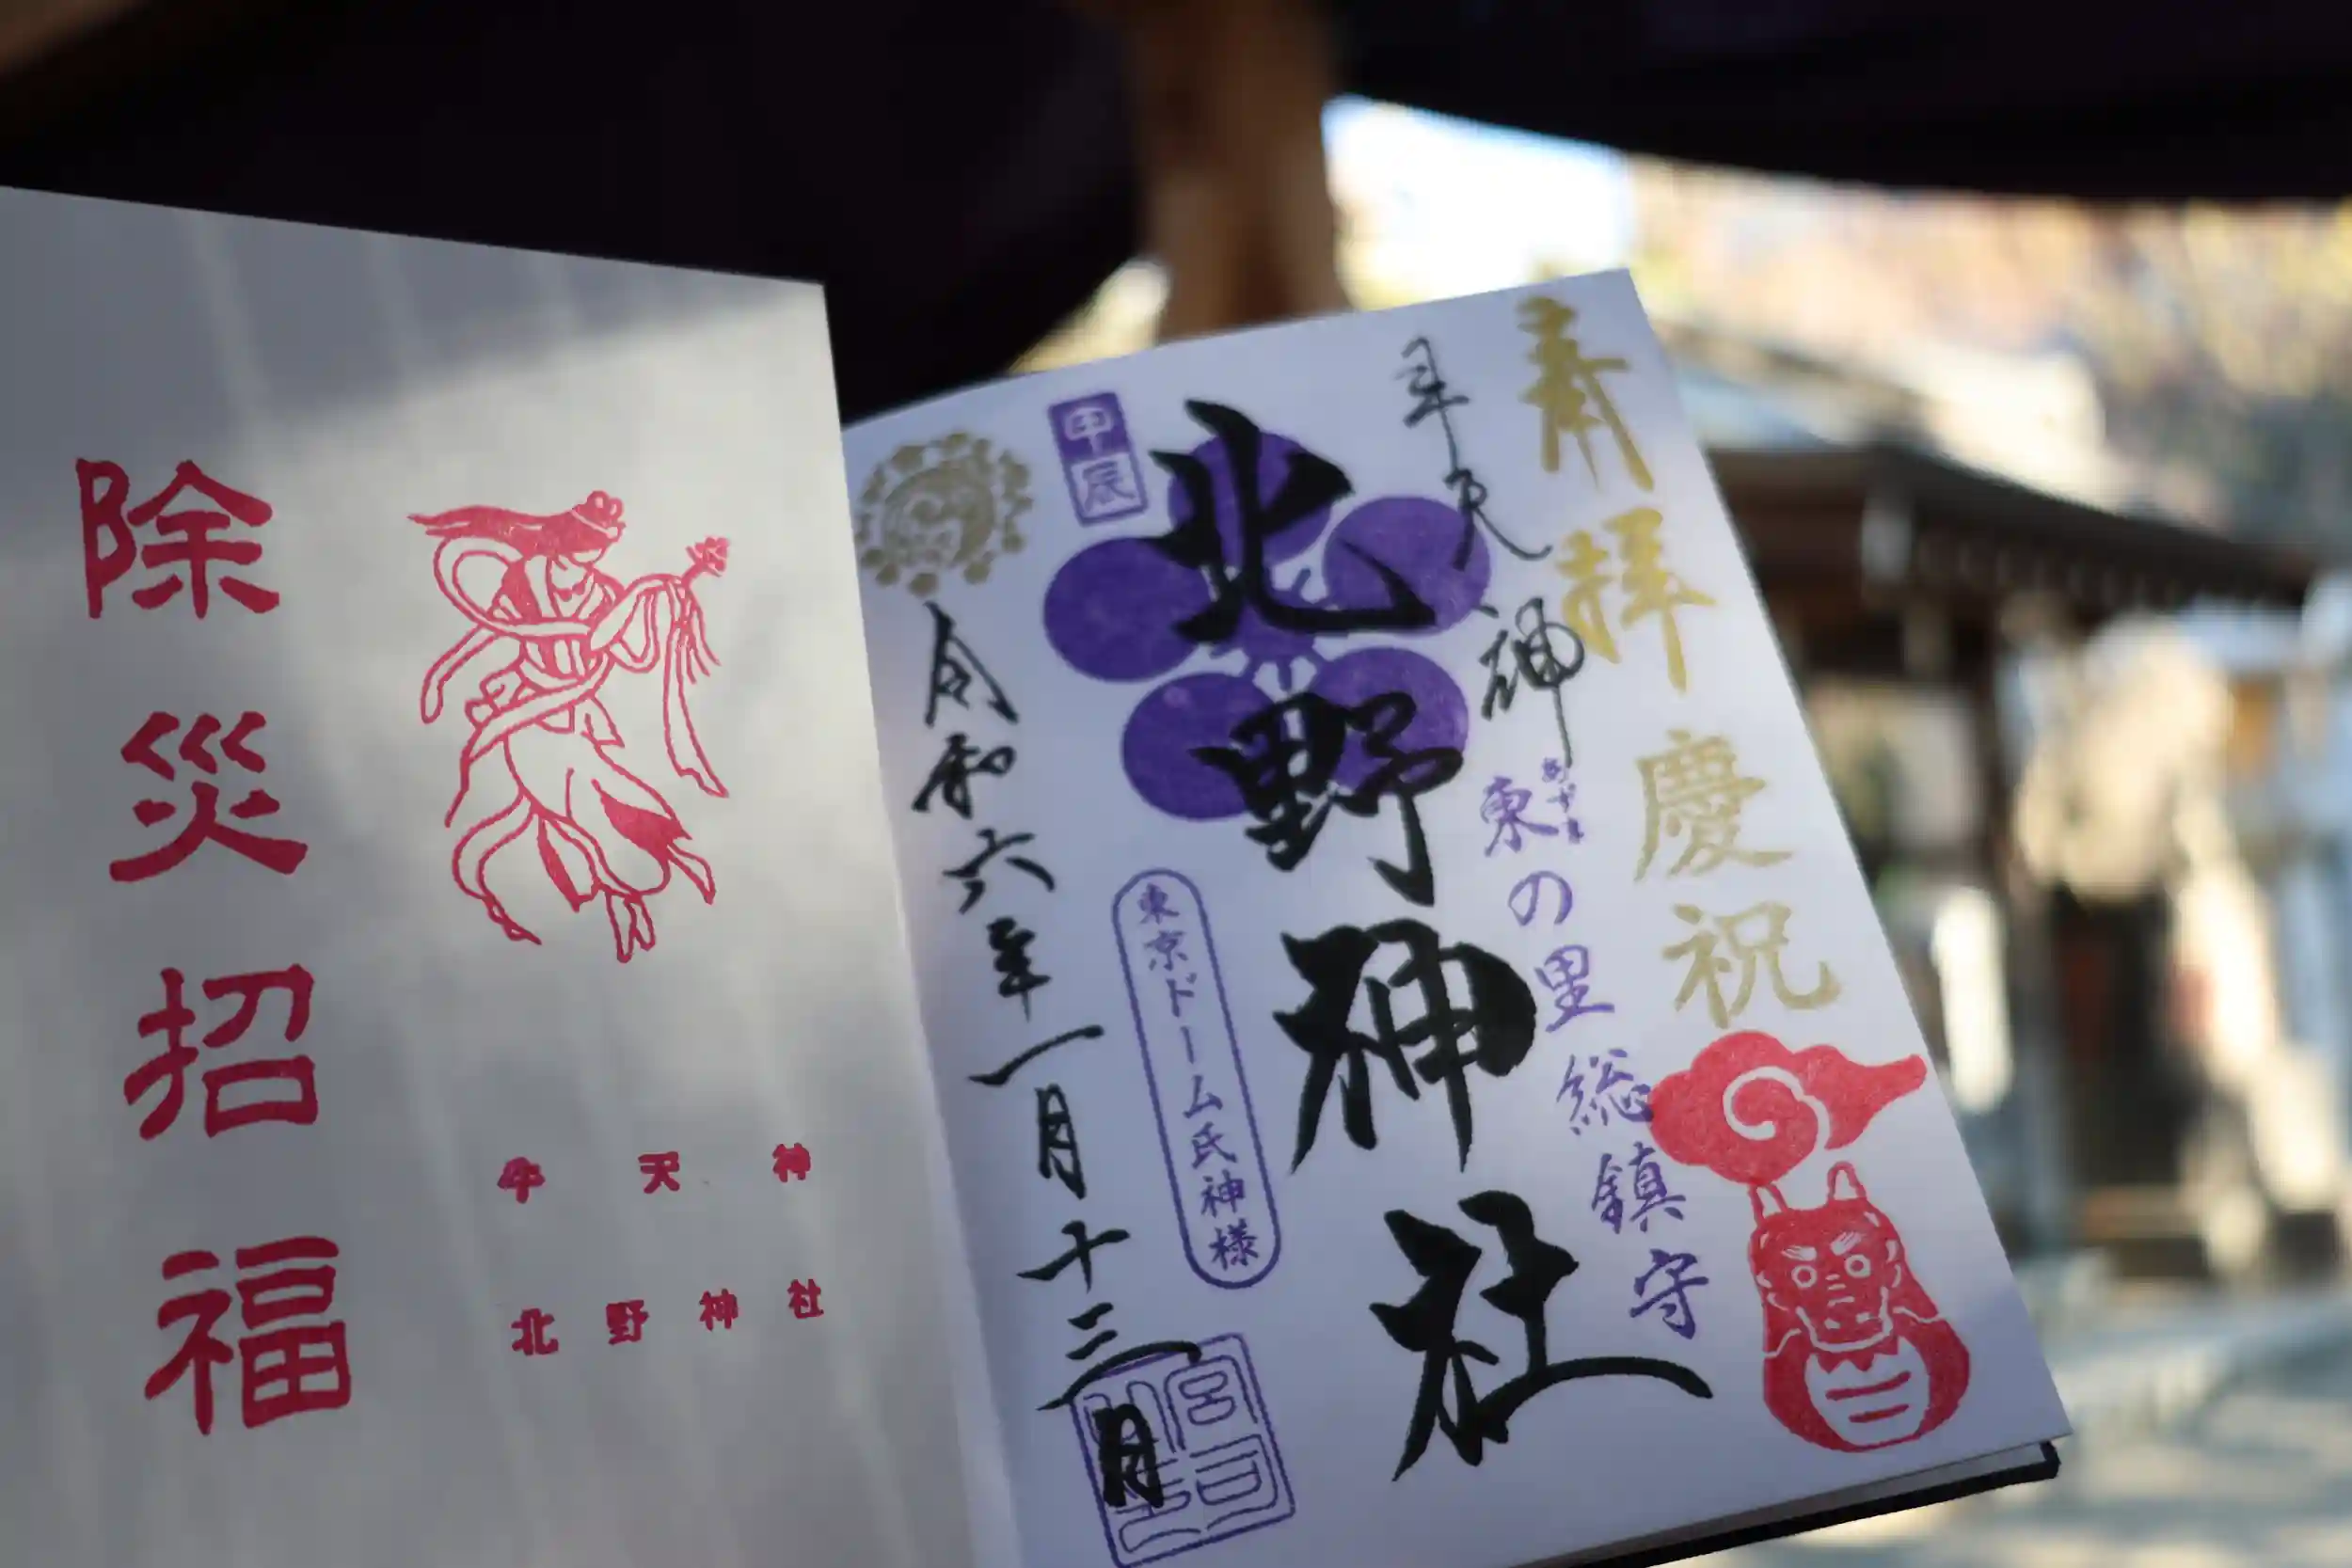 奉拝 慶祝
牛天神
あずま
東の里総鎮守
北野神社
甲辰
東京ドーム氏神様
令和六年一月十三日
牛天神
北野神社
除災招福